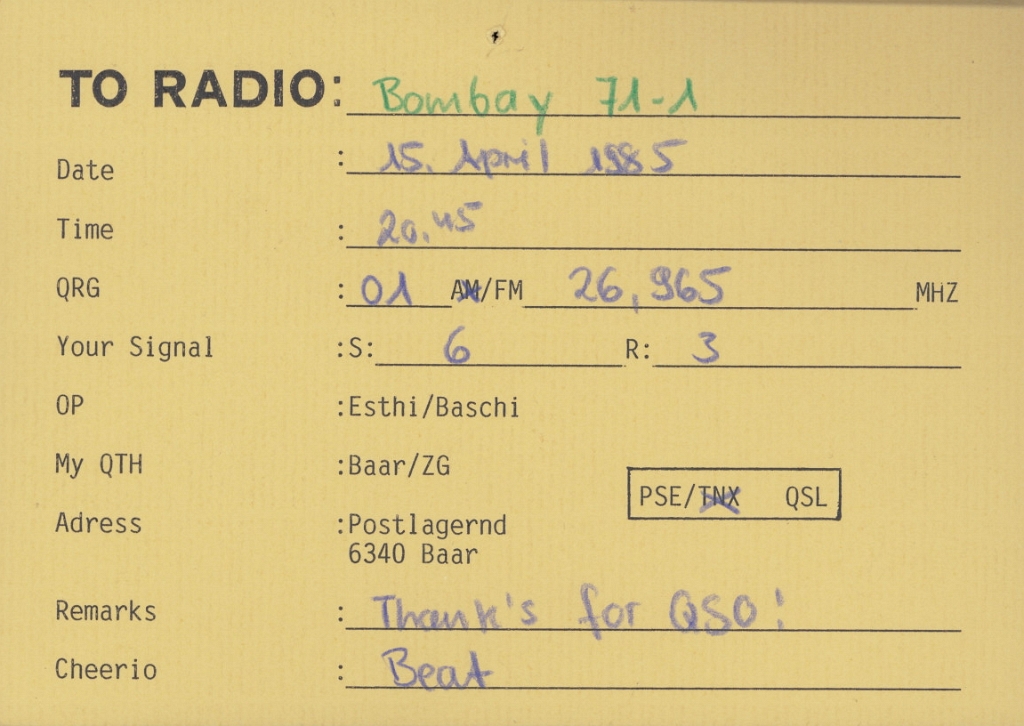 TO RADIO: Bombay 71-1
Date : 15. April 1985
Time : 20.45
QRG : 01 AM/FM 26,965 MHZ
Your Signal :S: 6 R: 3
OP :Esthi/Baschi
My QTH :Baar/ZG
PSE/TNX QSL
Adress :Postlagernd
6340 Baar
Remarks : Thank's for QSO!
Cheerio : Beat